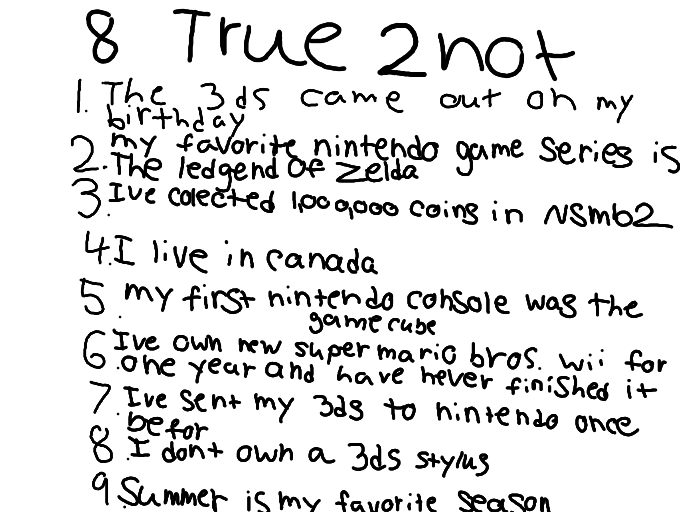 8 True 2 not
1. The 3ds came out on my
birthday
2. my favorite nintendo game series is
The ledgend of Zelda
3. Ive colected 1,000,000 coins in NSmb2
4. I live in canada
5 my first nintendo console was the
gamecube
6. Ive own new super mario bros. wii for
one year and have never finished it
7. Ive sent my 3ds to nintendo once
befor
8. I dont own a 3ds stylus
9 Summer is my favorite season